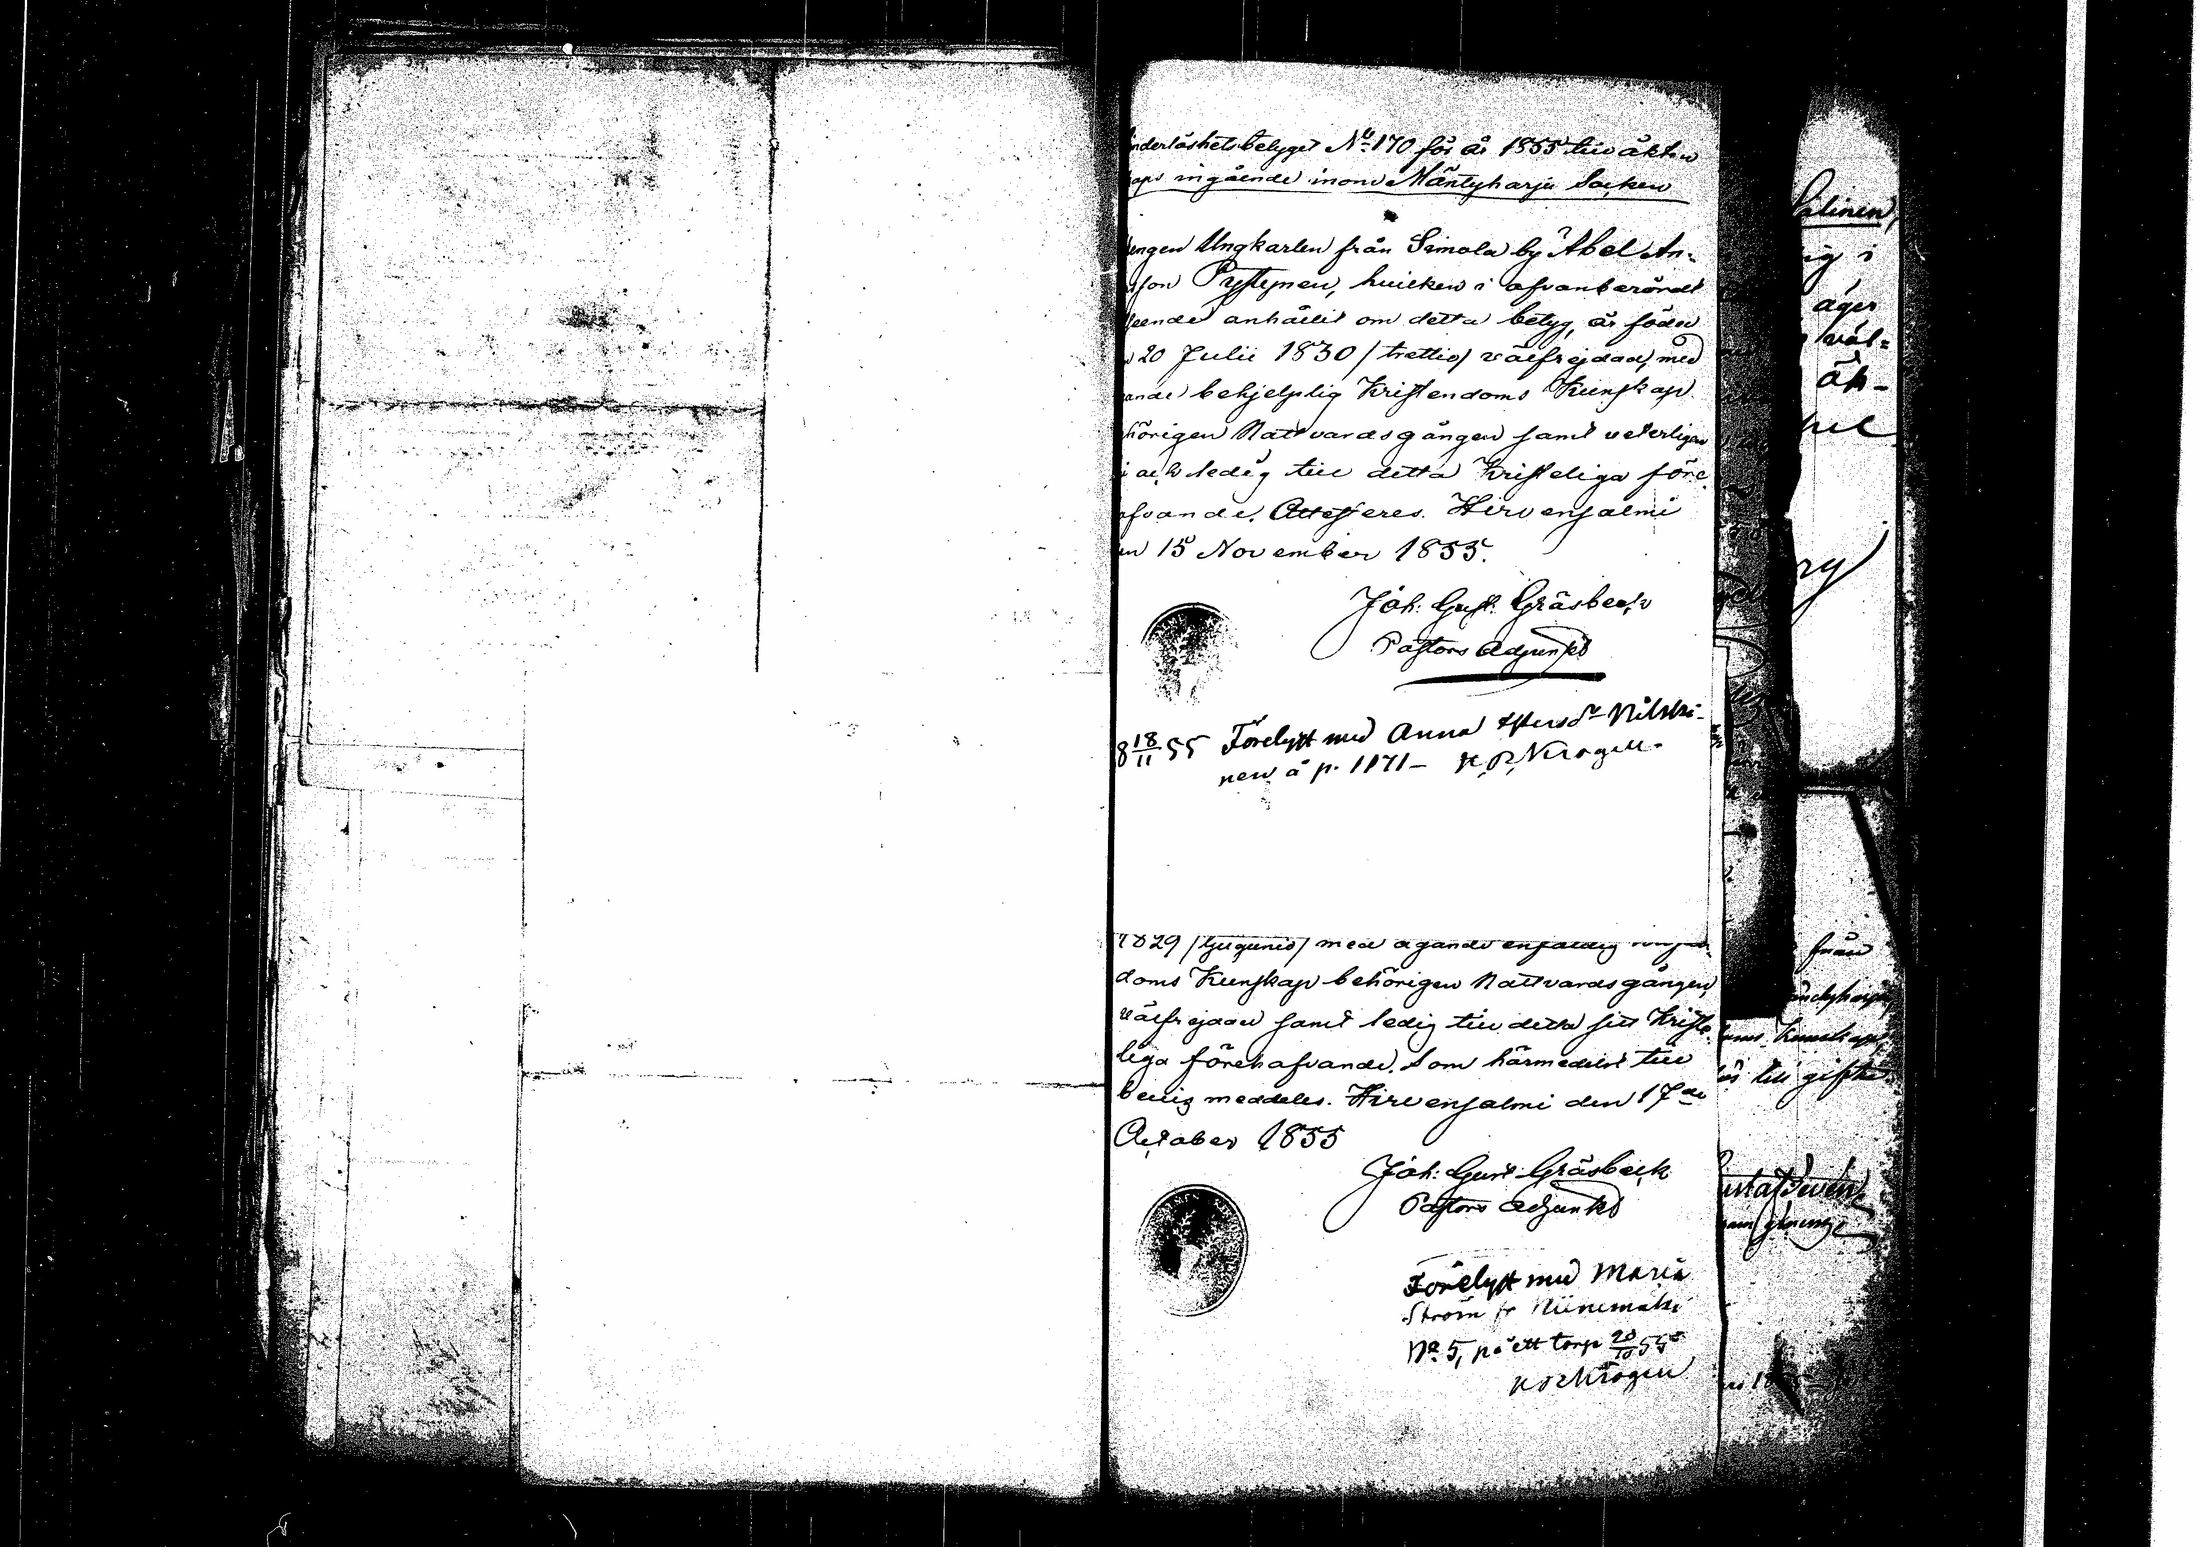 nderlåshetsbetyget No 170 för år 1855 till äkten
aps ingående inom Mäntyharju Socken
engen Ungkarlen från Simola by Abel An-
sson Pyttynen, hvilken i ofvanberördt
seende anhållit om detta betyg, är född
n 20 Julii 1830 /trettio/ välfrejdad, med
ande behjelplig Kristendoms Kunskap
hörigen Nattvardsgången samt veterligen
i och ledig till detta Kristeliga före
afvande. Attesteres. Hirvensalmi
en 15 November 1855.
Joh: Gust: Gräsbeck
Pastors Adjunkt
18/11 55 Förelyst med Anna
nen å p. 1171 - Krogell.
1829 /tjugunio/ med ägande enfaldig
doms Kunskap behörigen Nattvardsgången,
välfrejdad samt ledig till detta sitt Kriste
liga förehafvande. Som härmedelst till
bevis meddeles. Hirvensalmi den 17de
October 1855
Joh: Gust: Gräsbeck
Pastors Adjunkt
Förelyst med Maria
Ström fr Niinimäki
No 5, på ett torp 20/10 55
Krogell
Palinen,
ig i
äger
väl=
äk-
från
äntyharju
doms kunskap,
till gifte